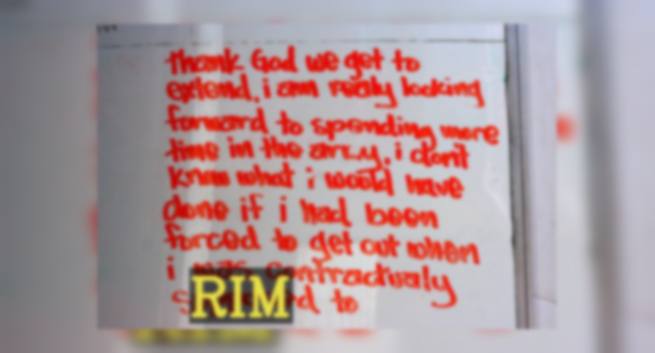 thank God we get to
extend, i am really looking
forward to spending more
time in the army. i don't
know what i would have
done if i had been
forced to get out when
i was contractualy
to
RIM